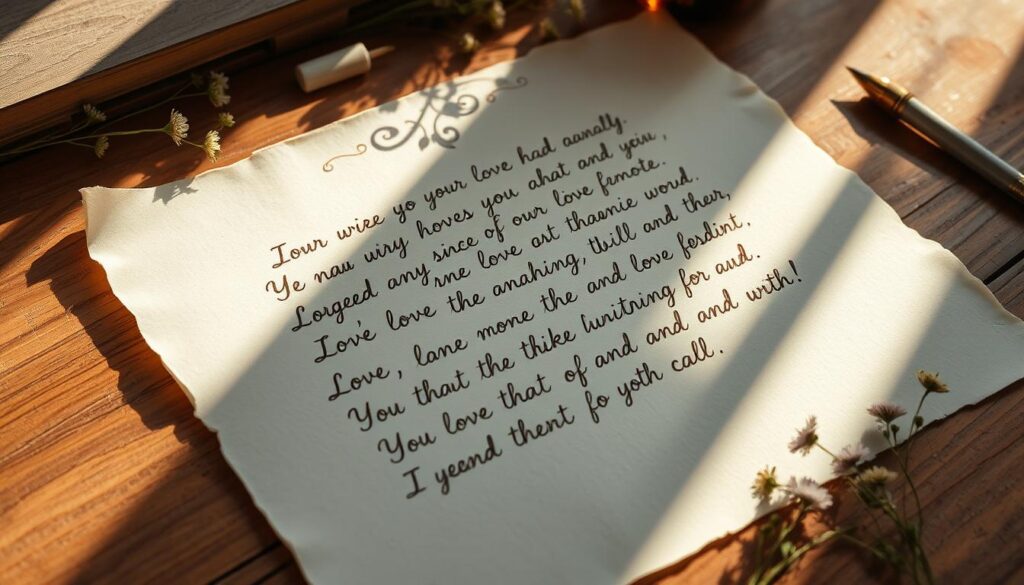 Iour wiree yo your love had aanally.
Ye nau wiry hoves you ahat and yeiu,
Lorgeed any since of our love femote.
rne love art thaanie woud.
Love love the anahing, tbill and their,
Love, lane mone the and love fesdint,
You thatt the thike (writning for aud.
You love that of and and and with!
I yeend thent fo yoth call.